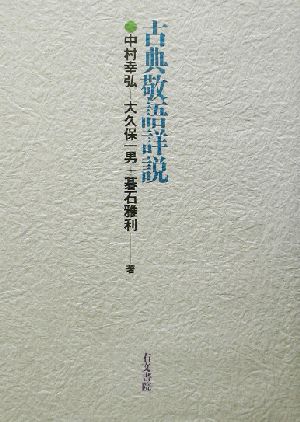 古典敬語詳説
中村幸弘－大久保一男＋碁石雅利──著
右文書院